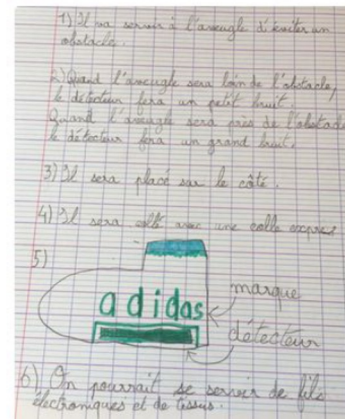 1) Il va servir à l'aveugle d'éviter un
obstacle.
2) Quand l'aveugle sera loin de l'obstacle,
le détecteur fera un petit bruit.
Quand l'aveugle sera près de l'obstacle
le détecteur fera un grand bruit.
3) Il sera placé sur le côté.
4) Il sera collé avec une colle exprès
5)
adidas
marque
détecteur
6) On pourrait se servir de fils
électroniques et de tissus.